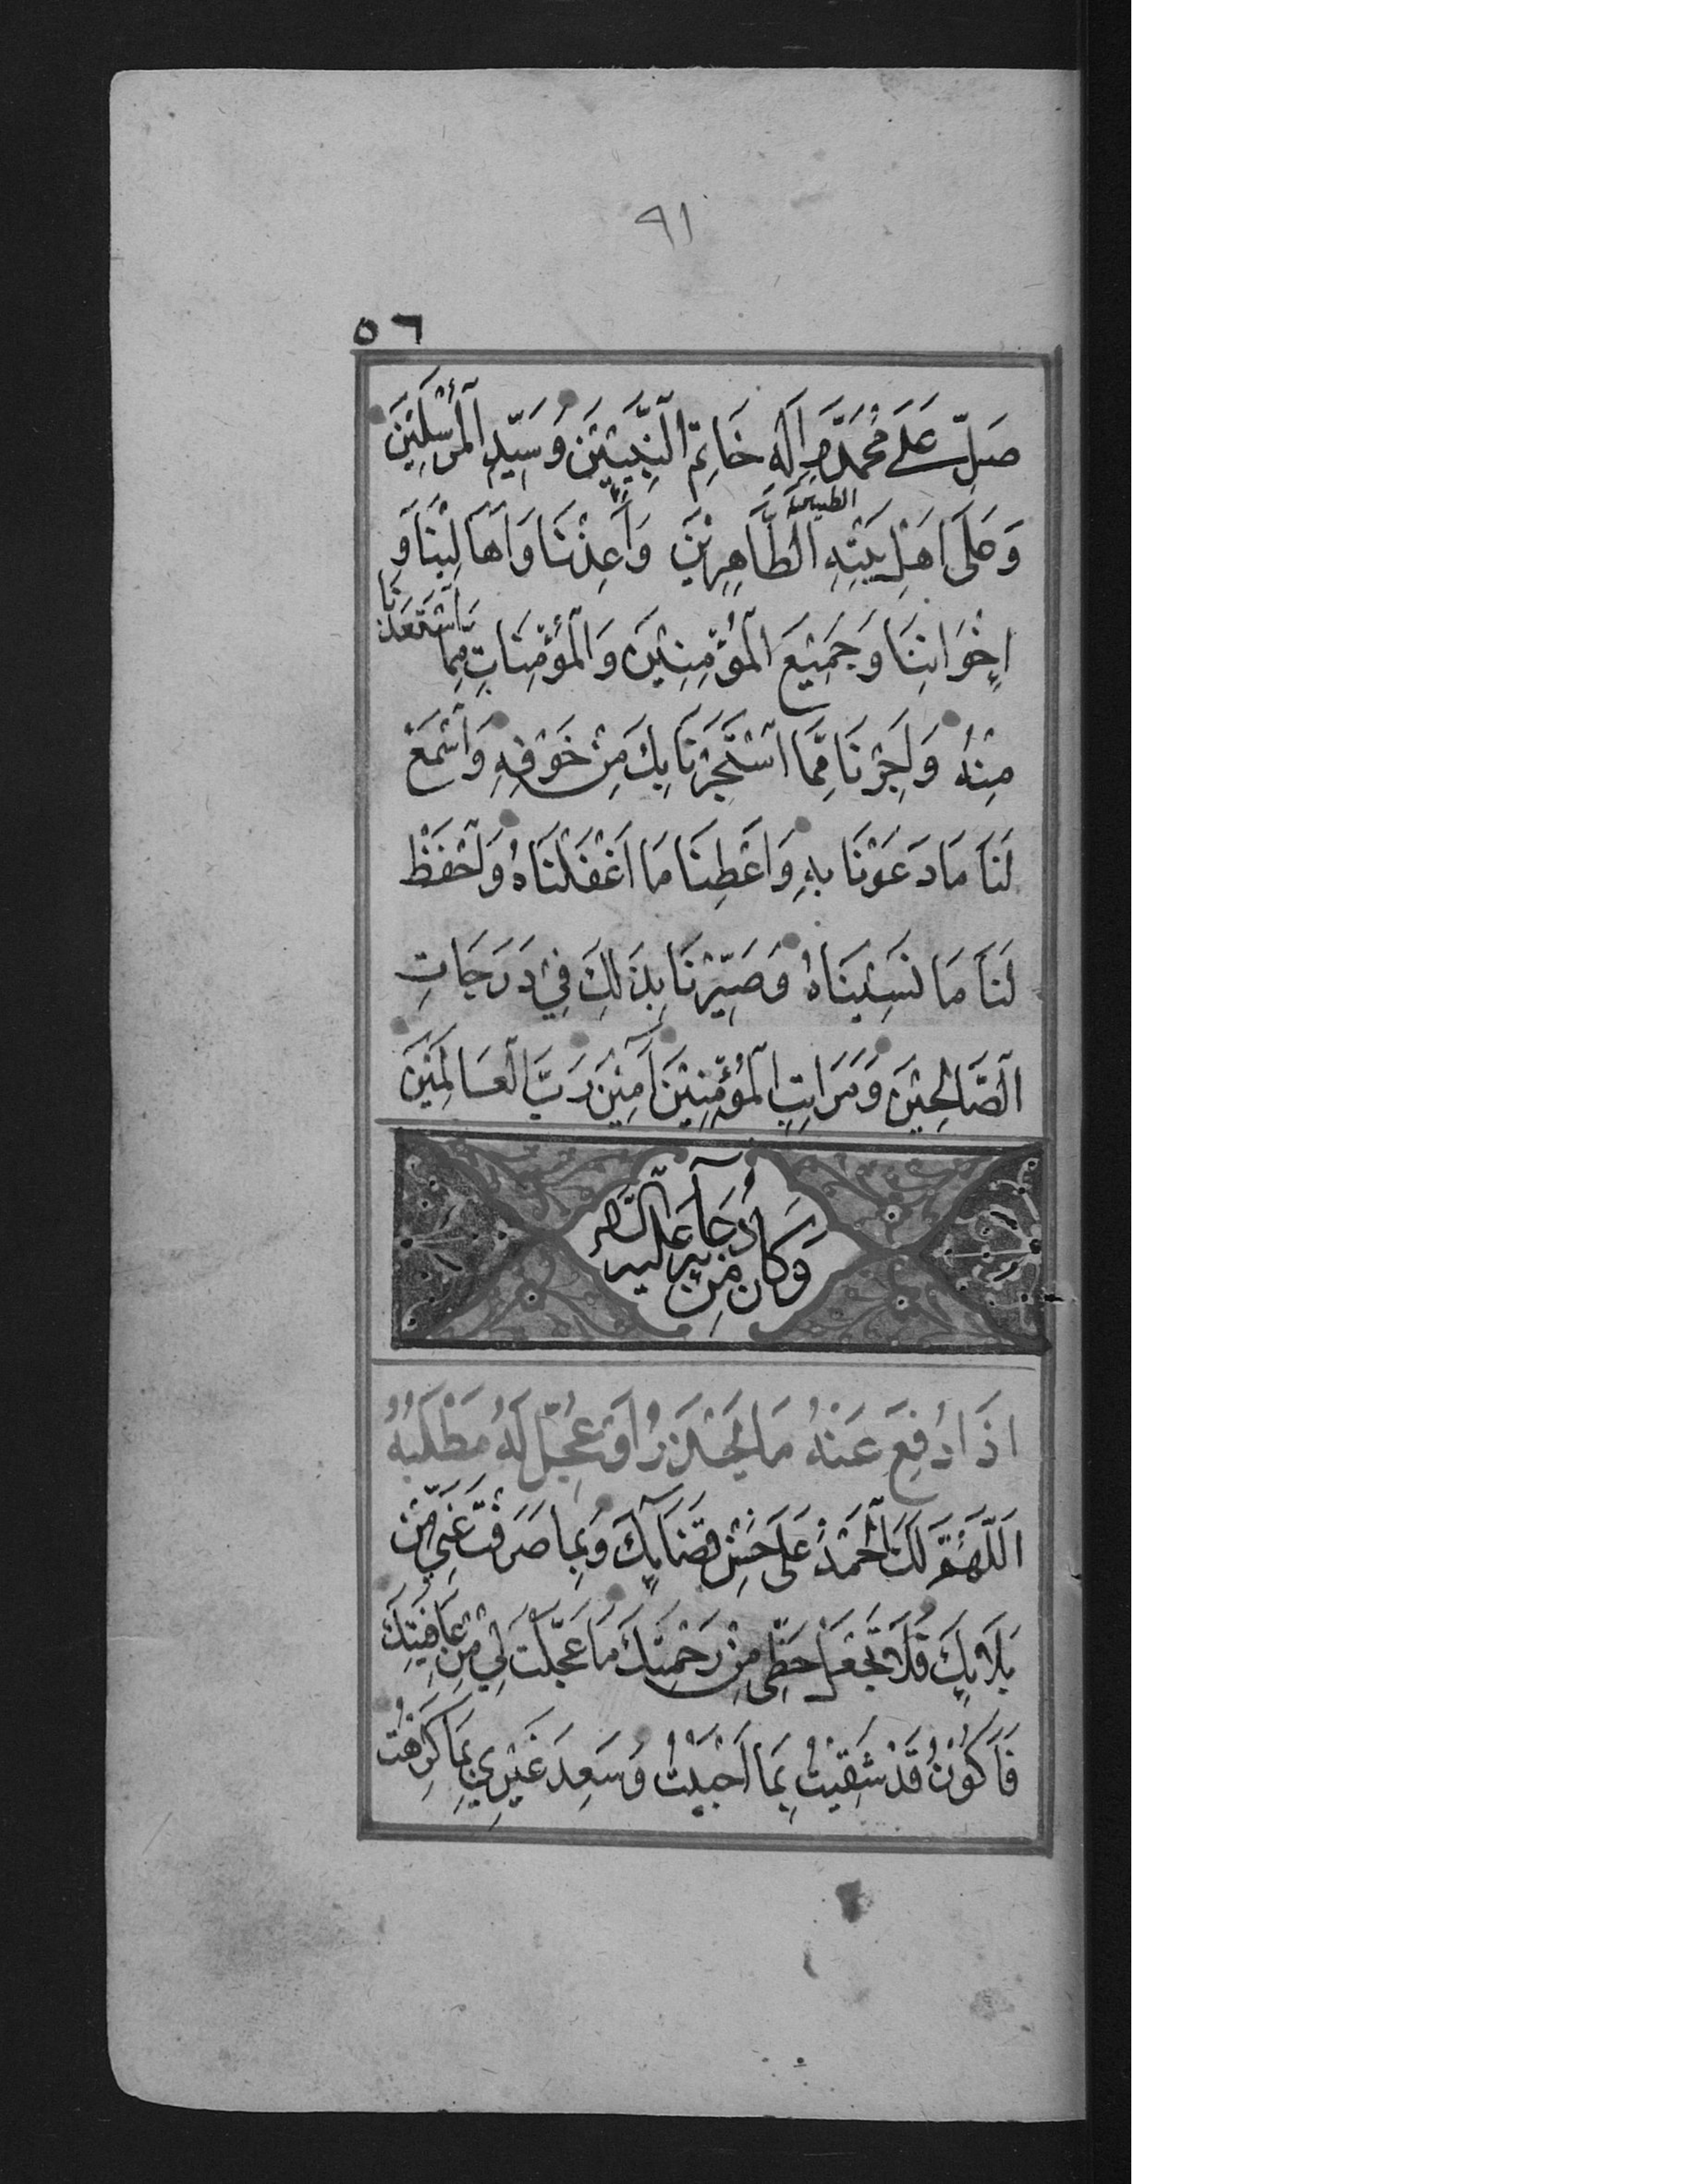 ٩١
٥٦
صَلِّ عَلَى مُحَمَّدٍ وَاٰلِهِ خَاتِمِ النَّبِيِّيْنَ وَسَيِّدِ الْمُرْسَلِيْنَ
وَعَلَى اَهْلِ بَيْتِهِ الطيبين الطَّاهِرِيْنَ وَاَعِذْنَا وَاَهَالِيْنَا وَ
اِخْوَانَنَا وَجَمِيْعَ الْمُؤْمِنِيْنَ وَالْمُؤْمِنَاتِ مِمَّا اسْتَعَذْنَا
مِنْهُ وَاَجِرْنَا مِمَّا اسْتَجَرْنَا بِكَ مِنْ خَوْفِهِ وَاسْمَعْ
لَنَا مَا دَعَوْنَا بِهِ وَاَعْطِنَا مَا اَغْفَلْنَاهُ وَاحْفَظْ
لَنَا مَا نَسِيْنَاهُ وَصَيِّرْنَا بِذَلِكَ فِيْ دَرَجَاتِ
الصَّالِحِيْنَ وَمَرَاتِبِ الْمُؤْمِنِيْنَ اٰمِيْنَ رَبَّ الْعَالَمِيْنَ
وَكَانَ مِنْ دُعَائِهِ عَلَيْهِ السَّلَام
اِذَا دُفِعَ عَنْهُ مَا يَحْذَرُ اَوْ عُجِّلَ لَهُ مَطْلَبُهُ
اَللّٰهُمَّ لَكَ الْحَمْدُ عَلَى حُسْنِ قَضَائِكَ وَبِمَا صَرَفْتَ عَنِّيْ مِنْ
بَلَائِكَ فَلَا تَجْعَلْ حَظِّيْ مِنْ رَحْمَتِكَ مَا عَجَّلْتَ لِيْ مِنْ عَافِيَتِكَ
فَاَكُوْنُ قَدْ شَقِيْتُ بِمَا اَحْبَبْتُ وَسَعِدَ غَيْرِيْ بِمَا كَرِهْتُ